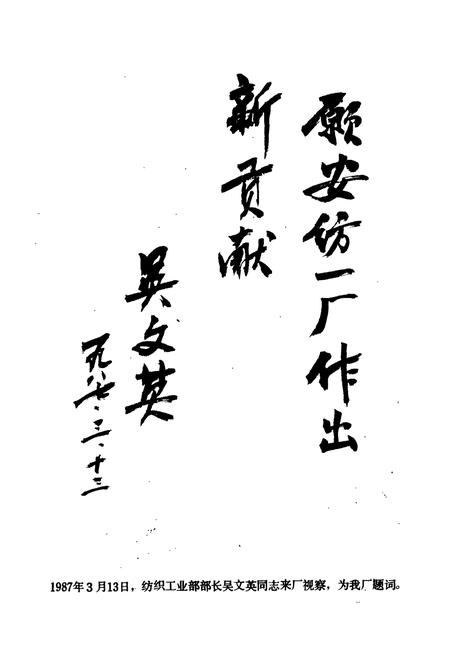 願安纺一厂作出
新贡献
吴文英
一九八七·三·十三
1987年3月13日，纺织工业部部长吴文英同志来厂视察，为我厂题词。